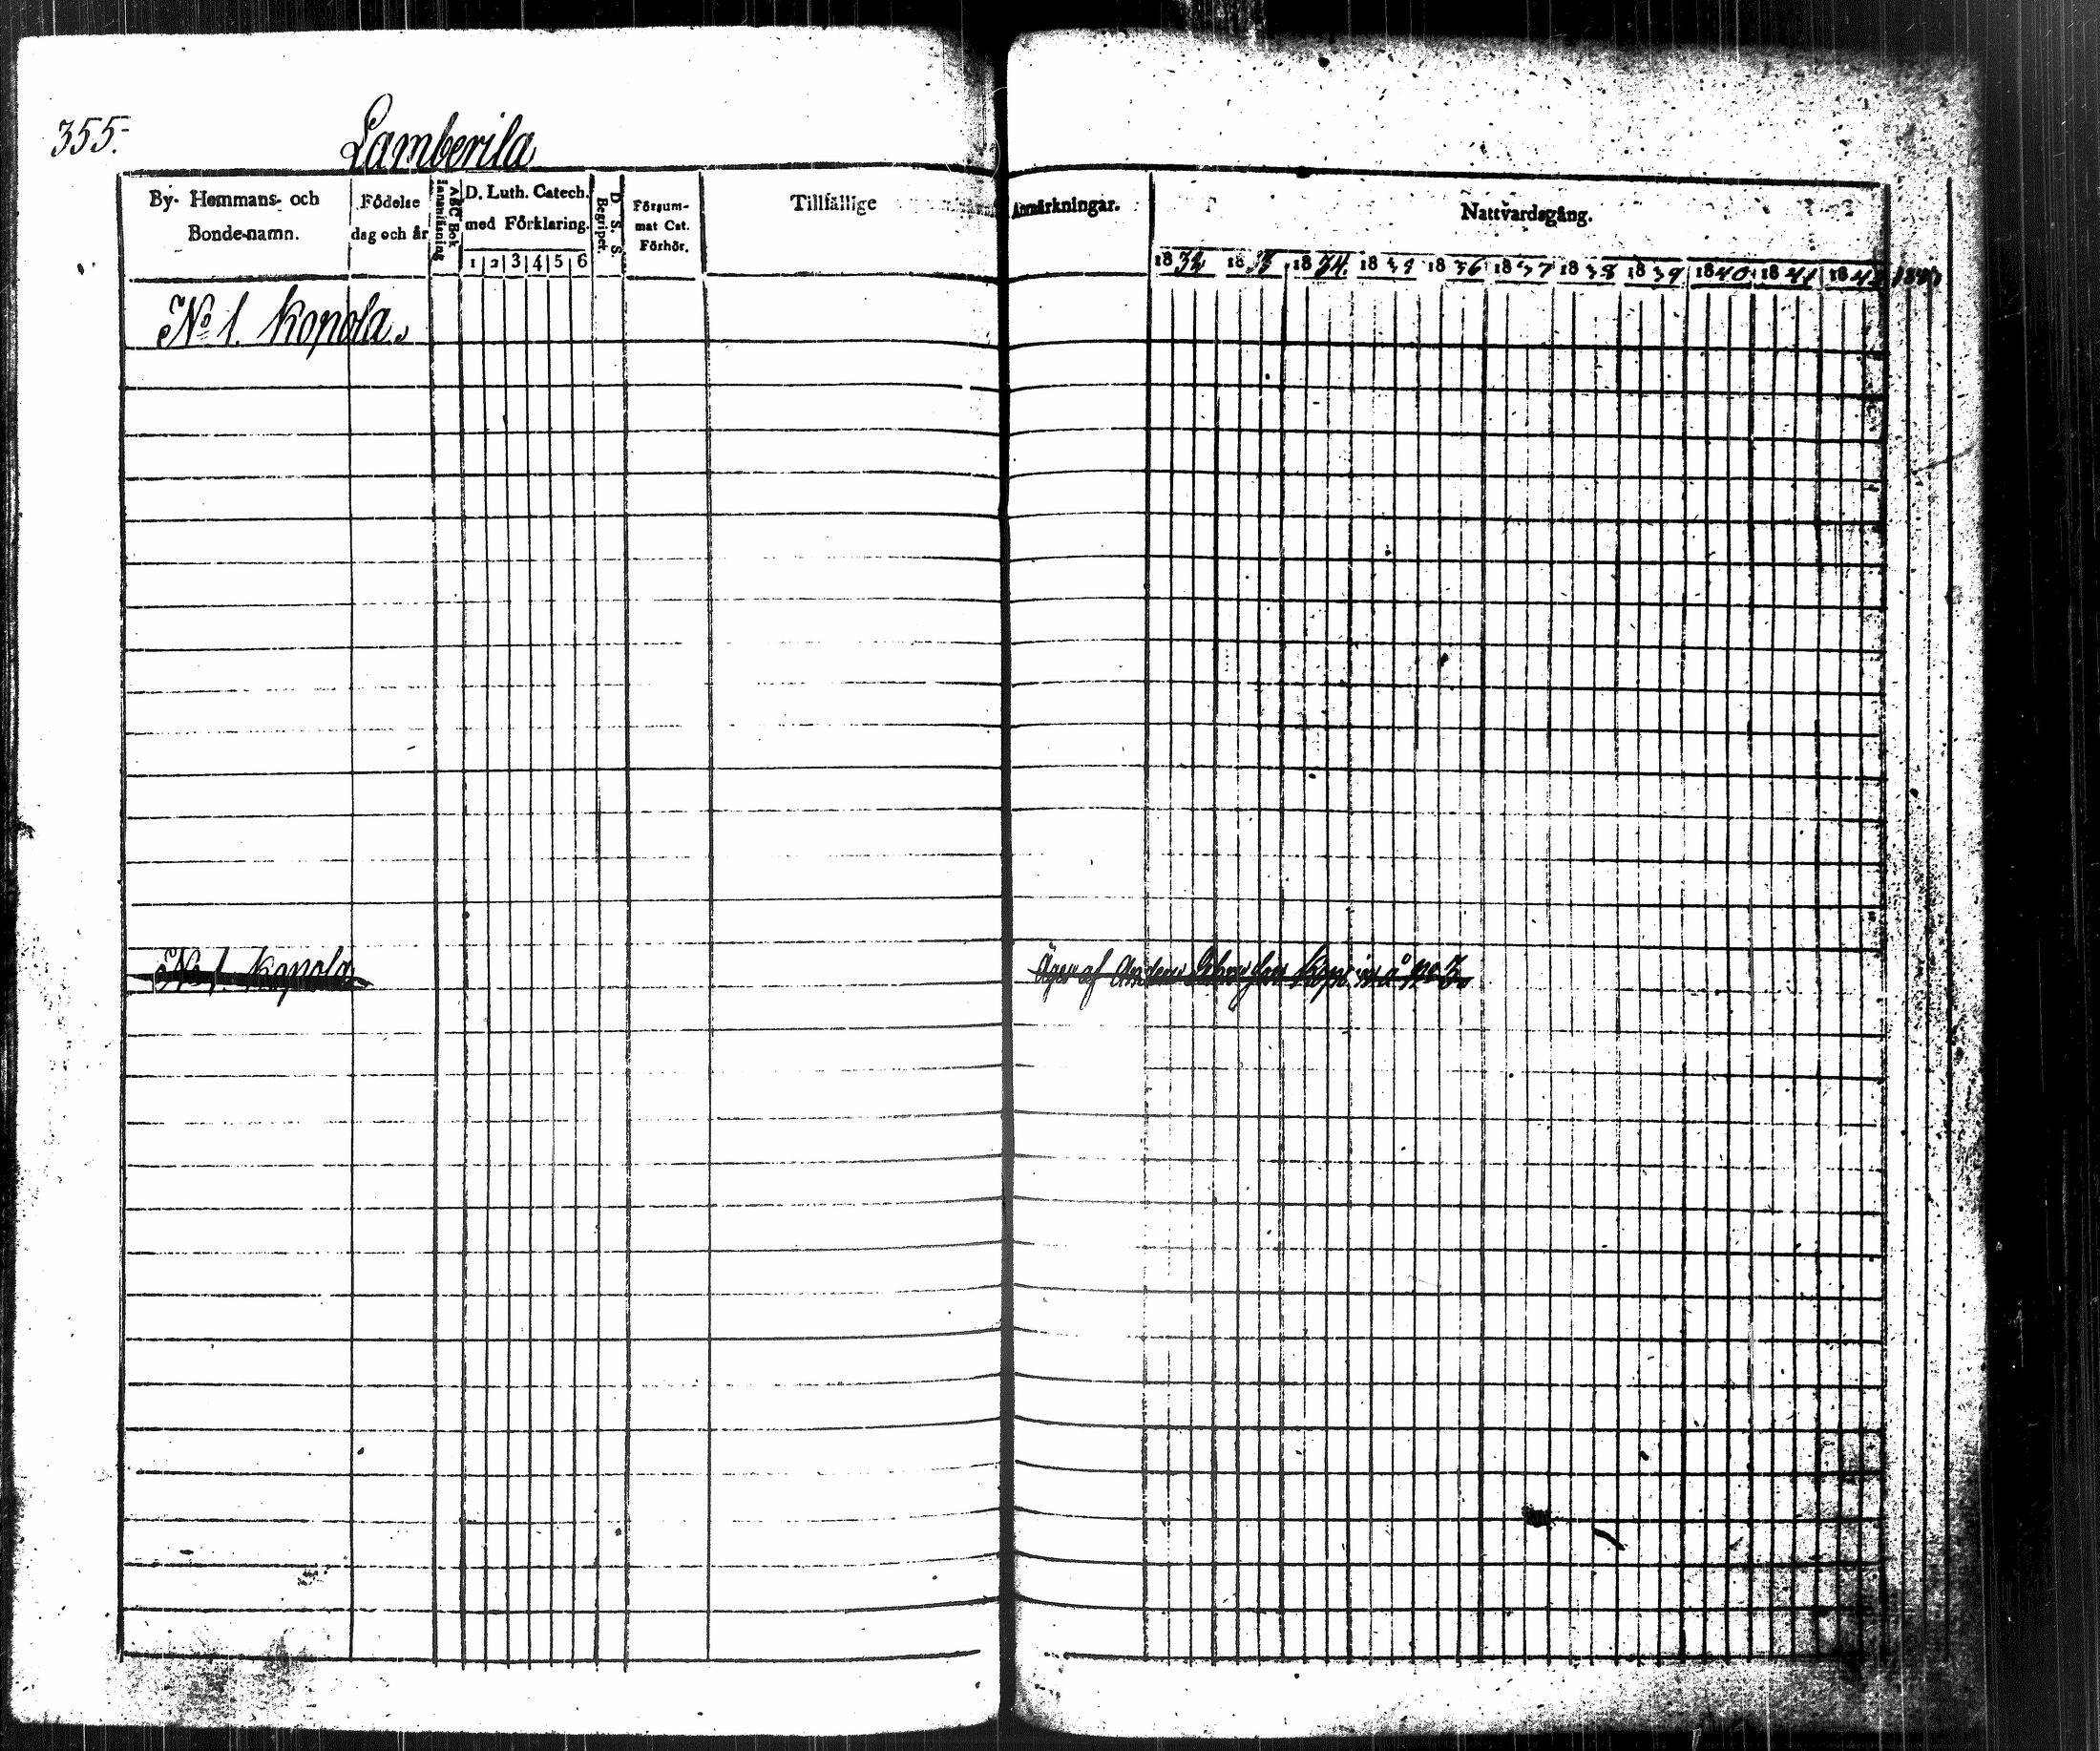 355.
Lamberila
By- Hemmans- och Bonde-namn.
Födelse dag och år
ABC Bok Innanläsning
D. Luth. Catech. med Förklaring.
1 2 3 4 5 6
D. S. S. Begripet.
Försum- mat Cat. Förhör.
Tillfällige Anmärkningar.
Nattvardsgång.
1832 1833 1834. 1835 1836 1837 1838 1839 1840 1841 1842 1843
No 1. Kopola.
No 1. Kopola
Äges af Anders å No 3.